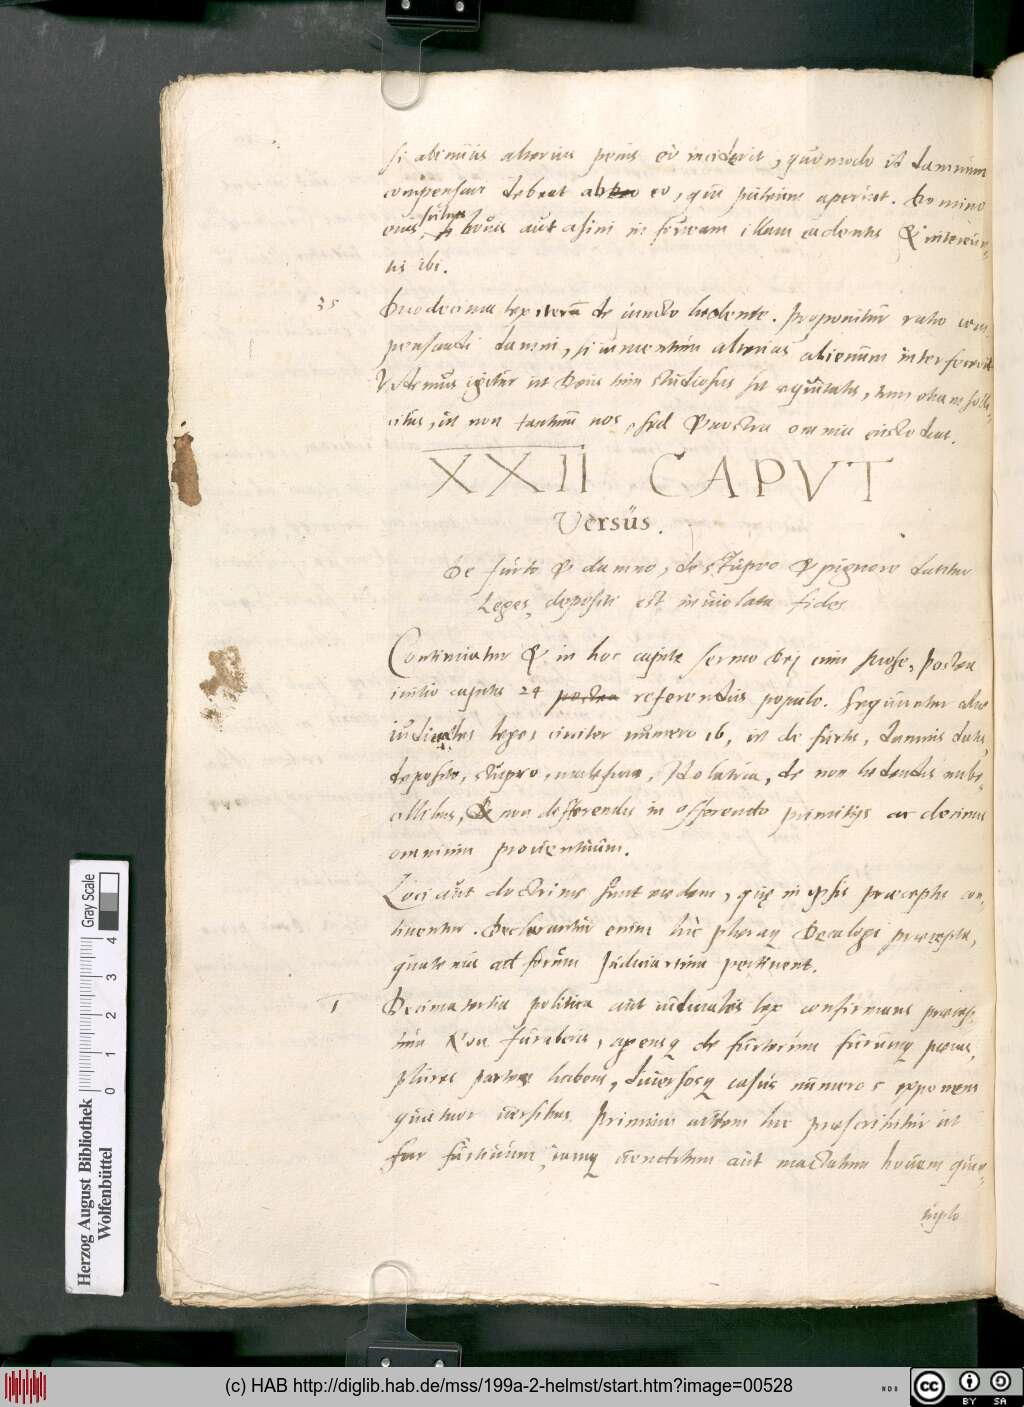 si alicuius alterius pecus eò inciderit, quomodo is damnum
compensari debeat ab eo, qui puteum aperuit. Domino
ouis, bouis aut asini in foueam illam cadentis & intereun-
tis ibi.
35 Duodecima lex iterū de cornupeta. Proponitur ratio com-
pensandi damni, si iumentum alterius alienum interfecerit
igitur ut Deus sit aequitatis,
citus, ut non tantum nos, sed & nostra omnia custodiat.
XXII CAPVT
Versus.
De furto & damno, de stupro & pignore dantur
Leges, depositi est inuiolata fides
Continuatur & in hoc capite sermo Dei cum Mose, postea
initio capitis 24 postea referendus populo. Sequuntur aliae
iudiciales leges circiter numero 16, ut de furto, damnis datis,
deposito, stupro, maleficio, Idolatria, de non laedendis
& non differendis in offerendo primitijs ac decimis
omnium prouentuum.
Loci aut doctrinae sunt eaedem, quę in ipsis praeceptis con-
tinentur. Declarantur enim hic pleraq Decalogi praecepta,
quatenus ad forum Iudiciarium pertinent.
1 Decima tertia politica aut iudicialis lex confirmans praecep-
tum Non furaberis, agensq de furtorum furumq poenis,
plures partes habens, diuersosq casus numero 5 exponens
quatuor uersibus. Primum autem hic praescribitur ut
fur furtiuum, iamq uenditum aut mactatum bouem quin-
tuplo
(c) HAB http://diglib.hab.de/mss/199a-2-helmst/start.htm?image=00528
Herzog August Bibliothek
Wolfenbüttel
0 1 2 3 4
Gray Scale
cc
BY SA